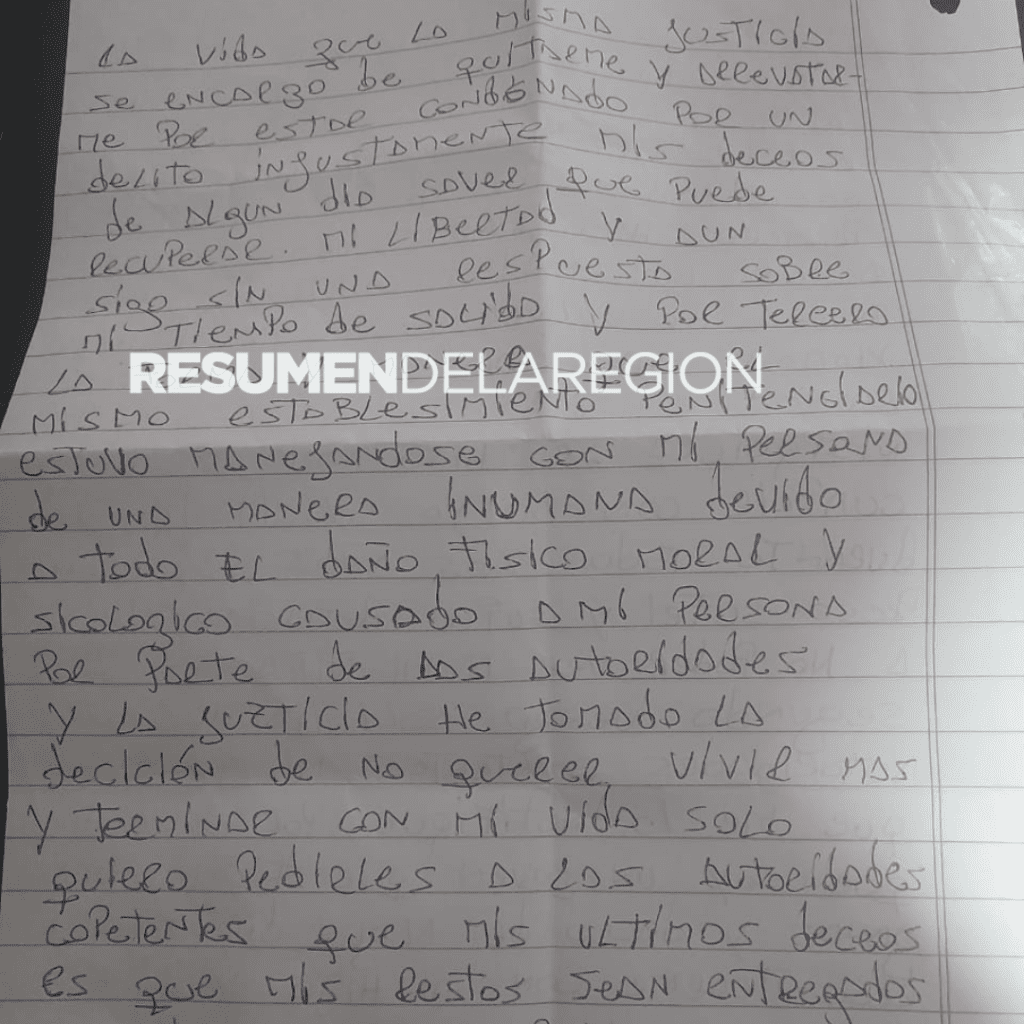 LA VIDA que LA MISMA JUSTICIA
SE ENCARGO DE QUITARME Y ARREVATAR-
ME POR ESTAR CONDENADO POR UN
DELITO INJUSTAMENTE MIS deceos
de ALGUN DIA SAVER que PUEDE
RECUPERAR. MI LIBERTAD Y AUN
SIGO SIN UNA RESPUESTA SOBRE
MI TIEMPO de SALIDA Y POR TERCERO
LA
RESUMENDELAREGION
MISMO ESTABLESIMIENTO PENITENCIARIO
ESTUVO MANEJANDOSE CON MI PERSANA
de UNA MANERA INUMANA deVIDO
A TODO EL DAÑO, FISICO MORAL Y
SICOLOGICO CAUSADO A MI PERSONA
POR PARTE de LAS AUTORIDADES
Y LA JUZTICIA HE TOMADO LA
decICIÓN de NO querer, VIVIR MAS
Y TERMINAR CON MI VIDA SOLO
quiero PEDIRLES A LAS AUTORIDADES
COPETENTES que MIS ULTIMOS deceos
es que MIS RESTOS SEAN ENTREGADOS